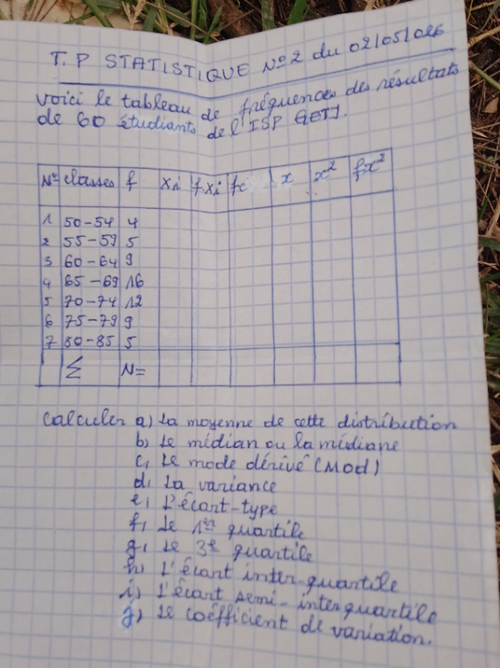 T.P STATISTIQUE N°2 du 02/05/026
voici le tableau de fréquences des résultats
de 60 étudiants de l'ISP GETY.
N° classes f xi fxi fc x x² fx²
1 50-54 4
2 55-59 5
3 60-64 9
4 65-69 16
5 70-74 12
6 75-79 9
7 80-85 5
Σ N=
Calculer a) La moyenne de cette distribution
b, Le médian ou la médiane
c, Le mode dérivé (Mod)
d, La variance
e, L'écart-type
f, Le 1er quartile
g, Le 3e quartile
h, L'écart inter-quartile
i) L'écart semi-interquartile
j) Le coéfficient de variation.